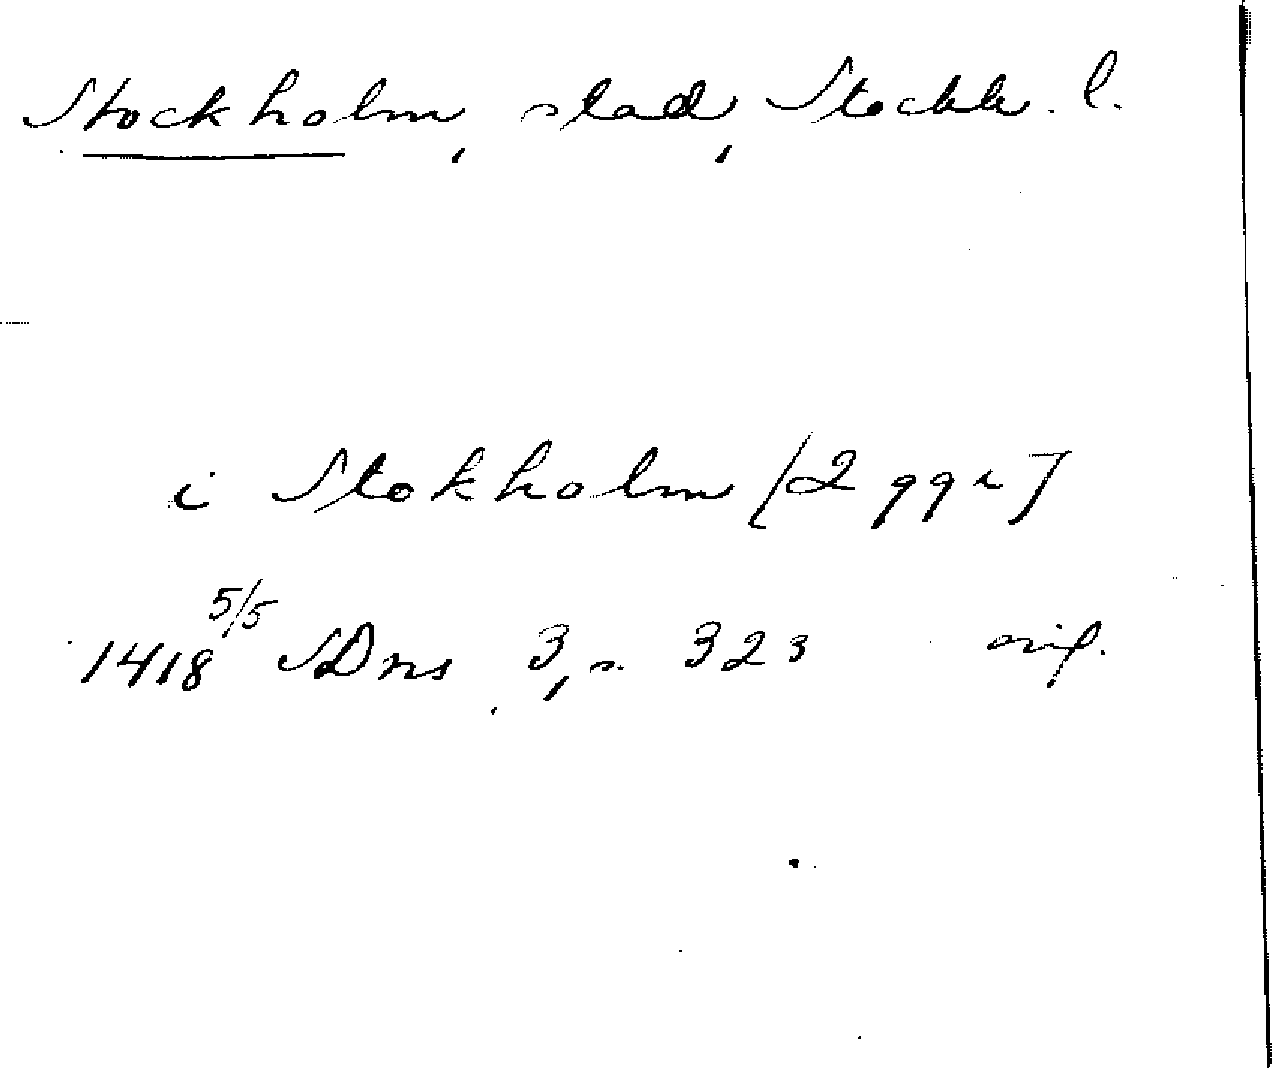 Stockholm, stad, Stockh. l.
i Stokholm [2 ggr]
1418 5/5 SDns 3, s. 323 orig.